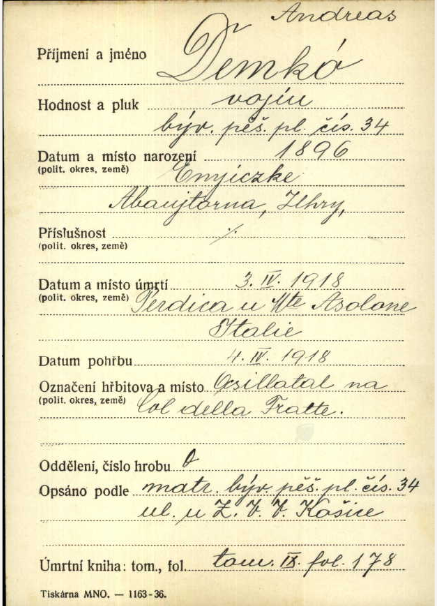 Andreas
Příjmení a jméno Demkó
Hodnost a pluk vojín
býv. pěš. pl. čís. 34
Datum a místo narození 1896
(polit. okres, země) Enyiczke
Abaujtorna, Uhry,
Příslušnost ⁒
(polit. okres, země)
Datum a místo úmrtí 3. IV. 1918
(polit. okres, země) Perdica u Mte Asolone
Italie
Datum pohřbu 4. IV. 1918
Označení hřbitova a místo Ocsillatal na
(polit. okres, země) Col della Fratte.
Oddělení, číslo hrobu
Opsáno podle matr. býv. pěš. pl. čís. 34
ul. u Z. V. V. Košice
Úmrtní kniha: tom., fol. tom. IX. fol. 178
Tiskárna MNO. — 1163-36.